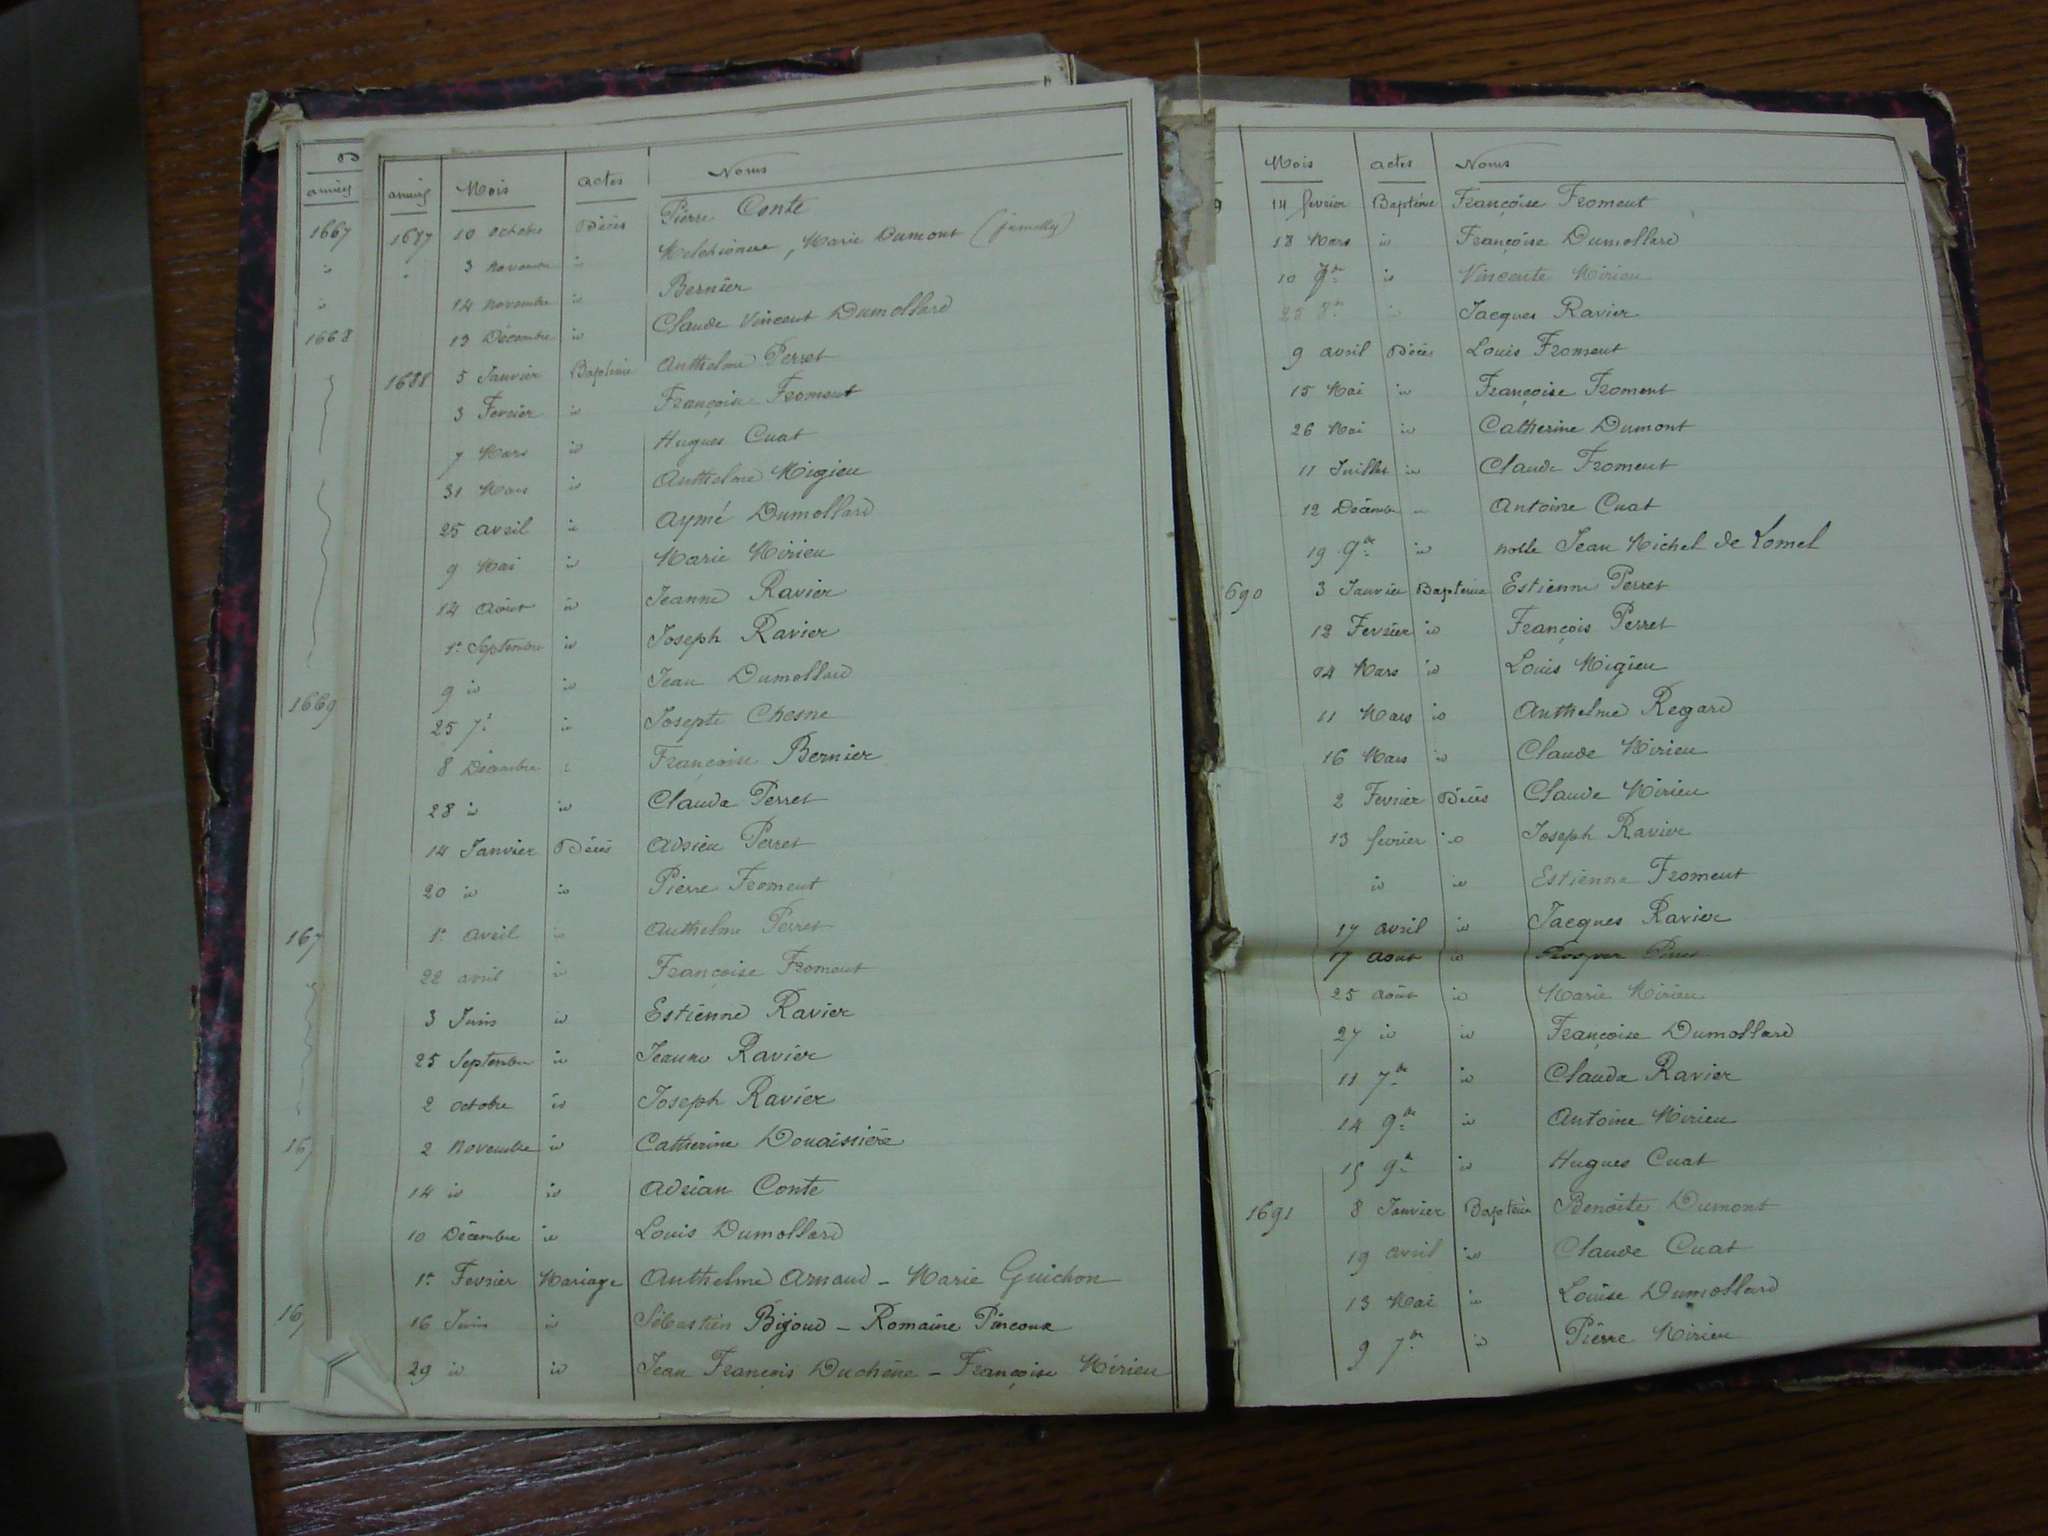 années
1667
id
id
1668
1669
167
167
16
années Mois actes Noms
1687 10 octobre Décès Pierre Conte
3 novembre id Melchionne, Marie Dumont (jumelles)
14 novembre id Bernier
13 Décembre id Claude Vincent Dumollard
1688 5 Janvier Baptême Anthelme Perret
3 Fevrier id Françoise Froment
7 Mars id Hugues Cuat
31 Mars id Anthelme Migieu
25 avril id Aymé Dumollard
9 Mai id Marie Mirieu
14 Août id Jeanne Ravier
1er Septembre id Joseph Ravier
9 id id Jean Dumollard
25 7e id Josepte Chesne
8 Décembre id Françoise Bernier
28 id id Claude Perret
14 Janvier Décès Adrien Perret
20 id id Pierre Froment
1er avril id Anthelme Perret
22 avril id Françoise Froment
3 Juin id Estienne Ravier
25 Septembre id Jeanne Ravier
2 octobre id Joseph Ravier
2 Novembre id Catherine Douaissière
14 id id Adrian Conte
10 Décembre id Louis Dumollard
1er Fevrier Mariage Anthelme Arnaud - Marie Guichon
16 Juin id Sébastien Bijoud - Romaine Pinconx
29 id id Jean François Duchêne - Françoise Mirieu
Mois actes Noms
9 14 fevrier Baptême Françoise Froment
18 Mars id Françoise Dumollard
10 7bre id Vincente Mirieu
25 8bre id Jacques Ravier
9 avril Décès Louis Froment
15 Mai id Françoise Froment
26 Mai id Catherine Dumont
11 Juillet id Claude Froment
12 Décembre id Antoine Cuat
19 9bre id noble Jean Michel de Lomel
690 3 Janvier Baptême Estienne Perret
12 Fevrier id François Perret
04 Mars id Louis Migieu
11 Mars id Anthelme Regard
16 Mars id Claude Mirieu
2 Fevrier Décès Claude Mirieu
13 fevrier id Joseph Ravier
id id Estienne Froment
17 avril id Jacques Ravier
17 aout id Prosper
25 août id Marie Mirieu
27 id id Françoise Dumollard
11 7bre id Claude Ravier
14 9bre id Antoine Mirieu
15 9bre id Hugues Cuat
1691 8 Janvier Baptême Benoite Dumont
19 avril id Claude Cuat
13 Mai id Louise Dumollard
9 7bre id Pierre Mirieu